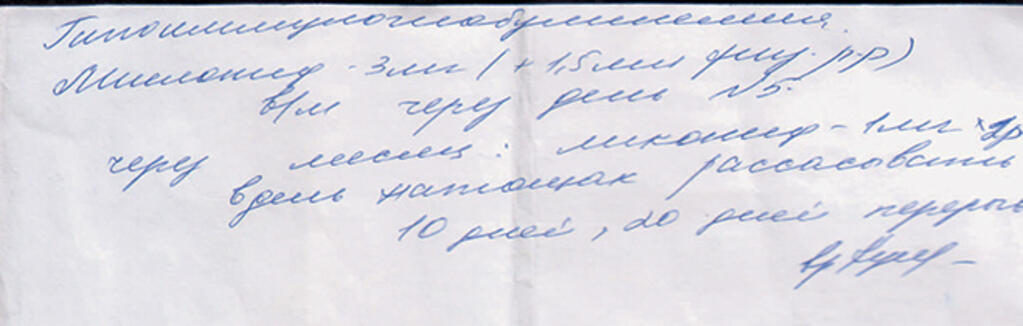 Гипоиммуноглобулинемия
Миелопид - 3 мг (+ 1,5 мл физ. р-р)
в/м через день №5.
через месяц: ликопид - 1 мг × 2р
в день натощак рассасовать
10 дней, 20 дней перерыв